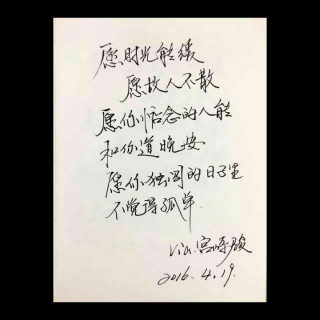 愿时光能缓
愿故人不散
愿你惦念的人能
和你道晚安
愿你独闯的日子里
不觉得孤单
Via.
2016.4.19.